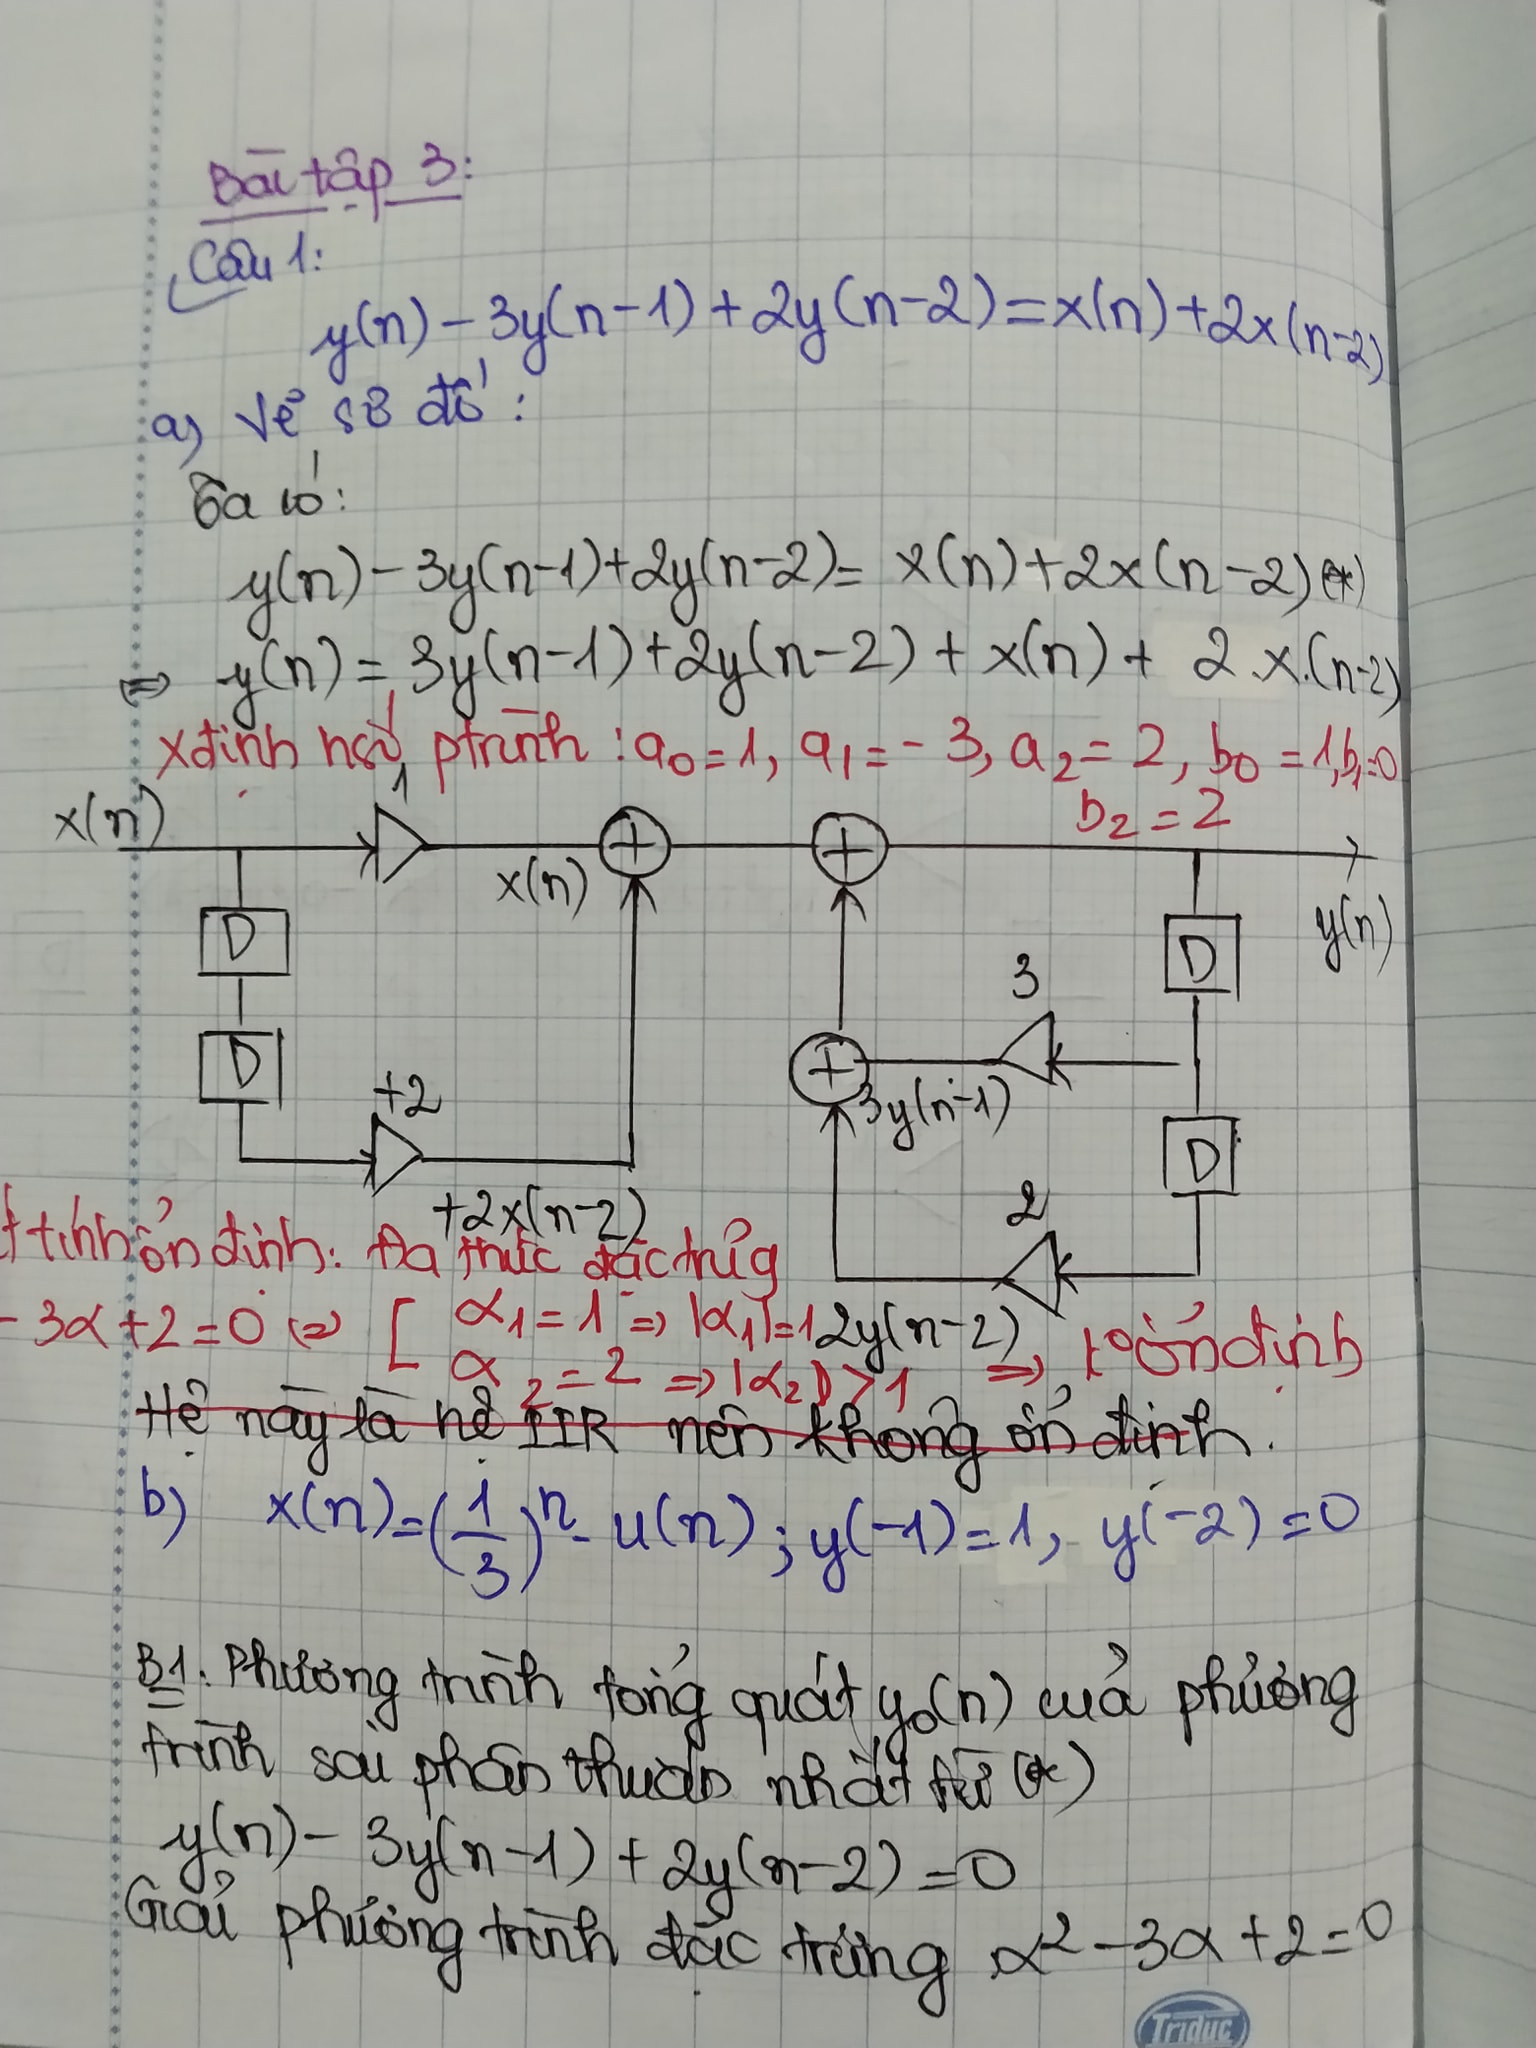 Bài tập 3:
Câu 1:
y(n) - 3y(n-1) + 2y(n-2) = x(n) + 2x(n-2)
a) Vẽ sơ đồ:
Ta có:
y(n) - 3y(n-1) + 2y(n-2) = x(n) + 2x(n-2) (*)
⇔ y(n) = 3y(n-1) + 2y(n-2) + x(n) + 2.x.(n-2)
xđịnh hsố ptrình: a₀ = 1, a₁ = -3, a₂ = 2, b₀ = 1, b₁=0
b₂ = 2
x(n)
1
+
+
x(n)
y(n)
D
D
3
D
+
3y(n-1)
+2
D
+2x(n-2)
2
t tính ổn định: Đa thức đặc trưng
- 3α + 2 = 0 ⇔ [ α₁ = 1 ⇒ |α₁| = 1
2y(n-2)
α₂ = 2 ⇒ |α₂| > 1 ⇒ k° ổn định
Hệ này là hệ IIR nên không ổn định.
b) x(n) = (1/3)ⁿ. u(n); y(-1) = 1, y(-2) = 0
B1: Phương trình tổng quát y₀(n) của phương
trình sai phân thuần nhất từ (*)
y(n) - 3y(n-1) + 2y(n-2) = 0
Giải phương trình đặc trưng α² - 3α + 2 = 0
Triduc